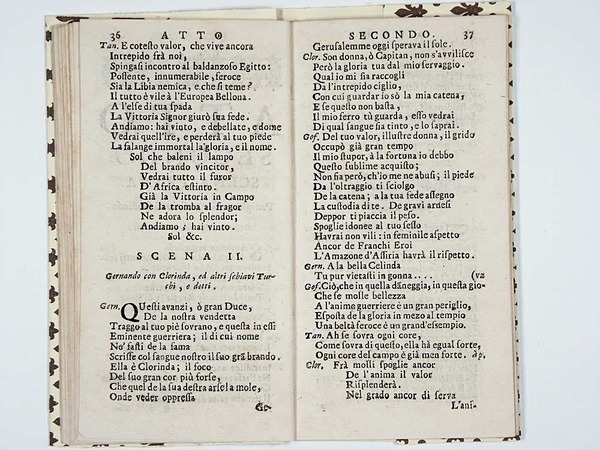 36 ATTO
Tan. E cotesto valor, che vive ancora
Intrepido frà noi,
Spingasi incontro al baldanzoso Egitto:
Possente, innumerabile, feroce
Sia la Libia nemica, e che si teme?
Il tutto è vile à l'Europea Bellona.
A l'else di tua spada
La Vittoria Signor giurò sua fede.
Andiamo: hai vinto, e debellate, e dome
Vedrai quell'ire, e perderà al tuo piede
La falange immortal la gloria, e il nome.
Sol che baleni il lampo
Del brando vincitor,
Vedrai tutto il furor
D'Africa estinto.
Già la Vittoria in Campo
De la tromba al fragor
Ne adora lo splendor;
Andiamo; hai vinto.
Sol &c.
SCENA II.
Gernando con Clorinda, ed altri schiavi Tur-
chi, e detti.
Gern. Questi avanzi, ò gran Duce,
De la nostra vendetta
Traggo al tuo piè sovrano, e questa in essi
Eminente guerriera; il di cui nome
No' fasti de la fama
Scrisse col sangue nostro il suo grã brando.
Ella è Clorinda; il foco
Del suo gran cor più forse,
Che quel de la sua destra arse la mole,
Onde veder oppressa
Ge-
SECONDO. 37
Gerusalemme oggi sperava il sole.
Clor. Son donna, ò Capitan, non s'avvilisce
Però la gloria tua dal mio servaggio.
Qual io mi sia raccogli
Da l'intrepido ciglio,
Con cui guardar io sò la mia catena,
E se questo non basta,
Il mio ferro tù guarda, esso vedrai
Di qual sangue sia tinto, e lo saprai.
Gof. Del tuo valor, illustre donna, il grido
Occupò già gran tempo
Il mio stupor, à la fortuna io debbo
Questo sublime acquisto;
Non sia però, ch'io me ne abusi; il piede
Da l'oltraggio ti sciolgo
De la catena; a la tua fede assegno
La custodia di te. De gravi arnesi
Deppor ti piaccia il peso.
Spoglie idonee al tuo sesso
Havrai non vili: in feminile aspetto
Ancor de Franchi Eroi
L'Amazone d'Assiria havrà il rispetto.
Gern. A la bella Celinda
Tu pur vietasti in gonna.... (va
Gof. Ciò, che in quella dãneggia, in questa gio-
Che se molle bellezza
A l'anime guerriere è un gran periglio,
Esposta de la gloria in mezo al tempio
Una beltà feroce è un grand'essempio.
Tan. Ah se sovra ogni core,
Come sovra di questo, ella hà egual sorte,
Ogni core del campo è già men forte. ap.
Clor. Frà molli spoglie ancor
De l'anima il valor
Risplenderà.
Nel grado ancor di serva
L'ani-